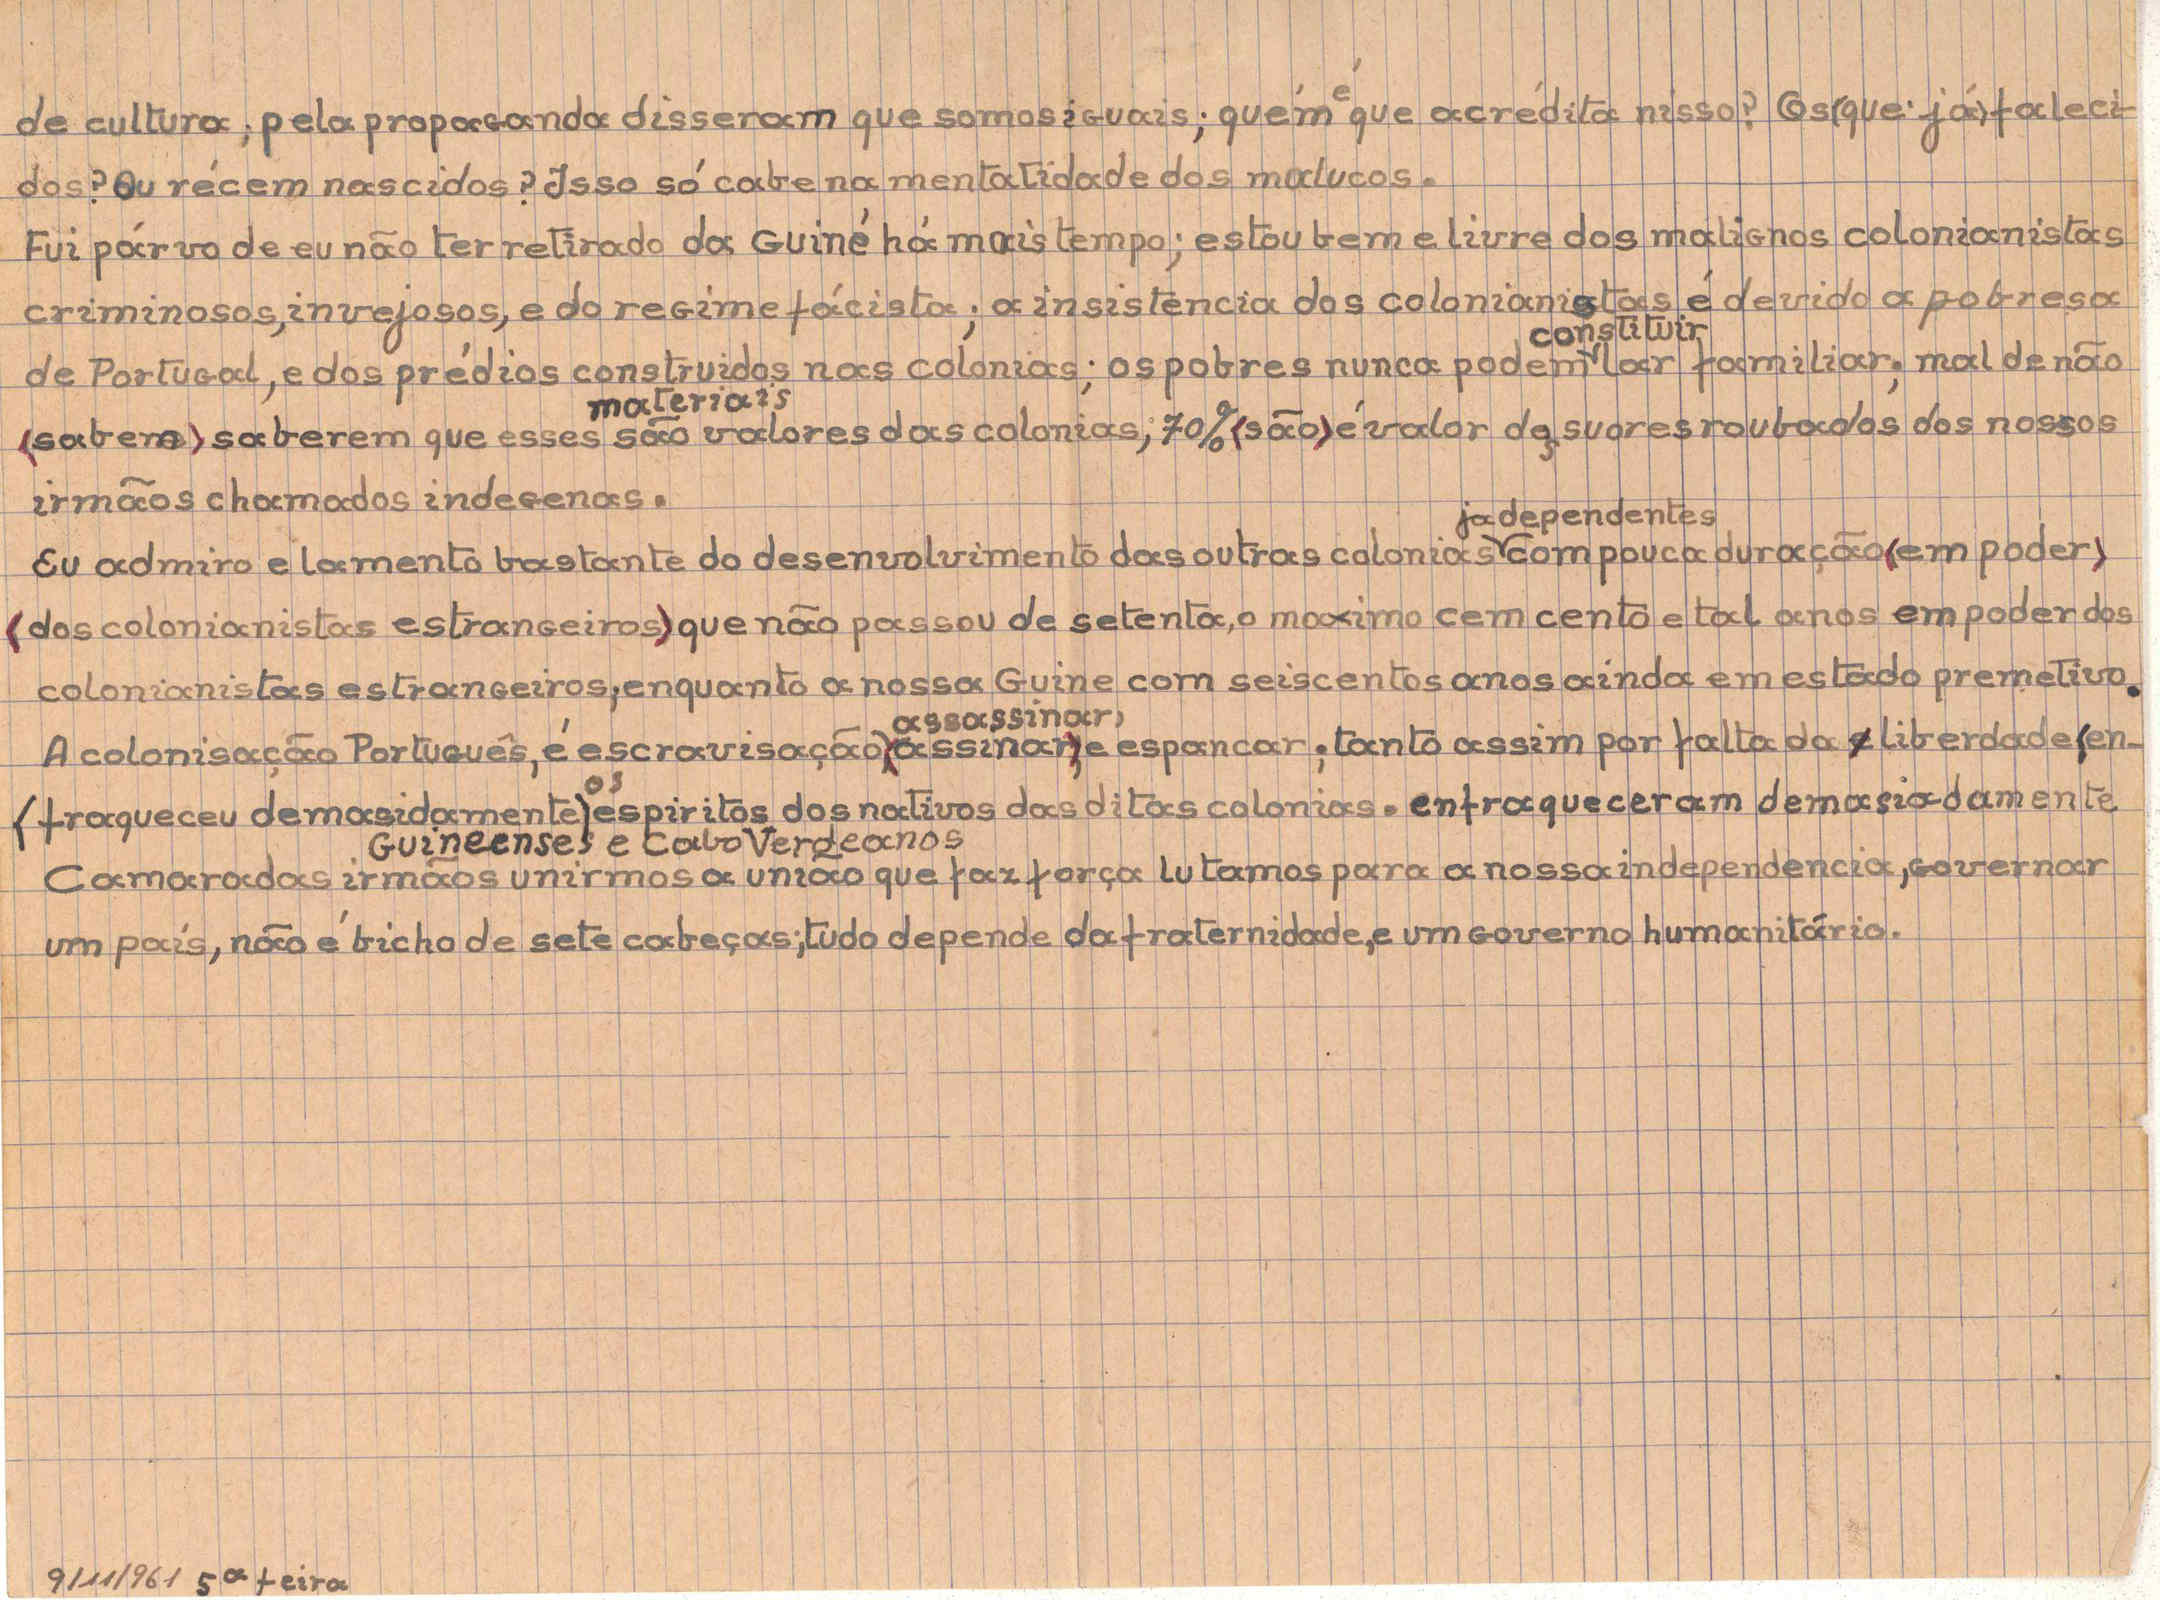 de cultura; pela propaganda disseram que somos iguais; quém é que acrédita nisso? Os (que já) faleci-
dos? Ou récem nascidos? Isso só cabe na mentalidade dos malucos.
Fui párvo de eu não ter retirado da Guiné há mais tempo; estou bem e livre dos malignos colonianistas
criminosos, invejosos, e do regime fácista; a insistencia dos colonianistas é devido a pobresa
constituir
de Portugal, e dos prédios construidos nas colónias; os pobres nunca podem lar familiar; mal de não
materiais
(sabem) saberem que esses são valores das colonias; 70% (são) é valor dos suores roubados dos nossos
irmãos chamados indegenas.
ja dependentes
Eu admiro e lamento bastante do desenvolvimento das outras colonias com pouca duração (em poder)
(dos colonianistas estrangeiros) que não passou de setenta, o maximo cem cento e tal anos em poder dos
colonianistas estrangeiros, enquanto a nossa Guine com seiscentos anos ainda em estado premetivo.
assassinar,
A colonisação Português, é escravisação, (assinar), e espancar; tanto assim por falta da liberdade (en-
os
(fraqueceu demasidamente) espiritos dos nativos das ditas colonias. enfraqueceram demasiadamente
Guineenses e Cabo Verdeanos
Camaradas irmãos unirmos a uniao que faz força lutamos para a nossa independencia, governar
um país, não é bicho de sete cabeças; tudo depende da fraternidade, e um governo humanitário.
9/11/961 5ª feira